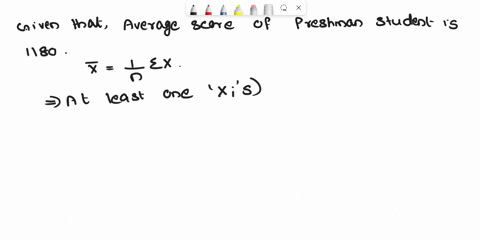 Given that, Average score of Freshman student is
1180.
x̄ = 1/n Σx.
⇒ At least one 'xi's)